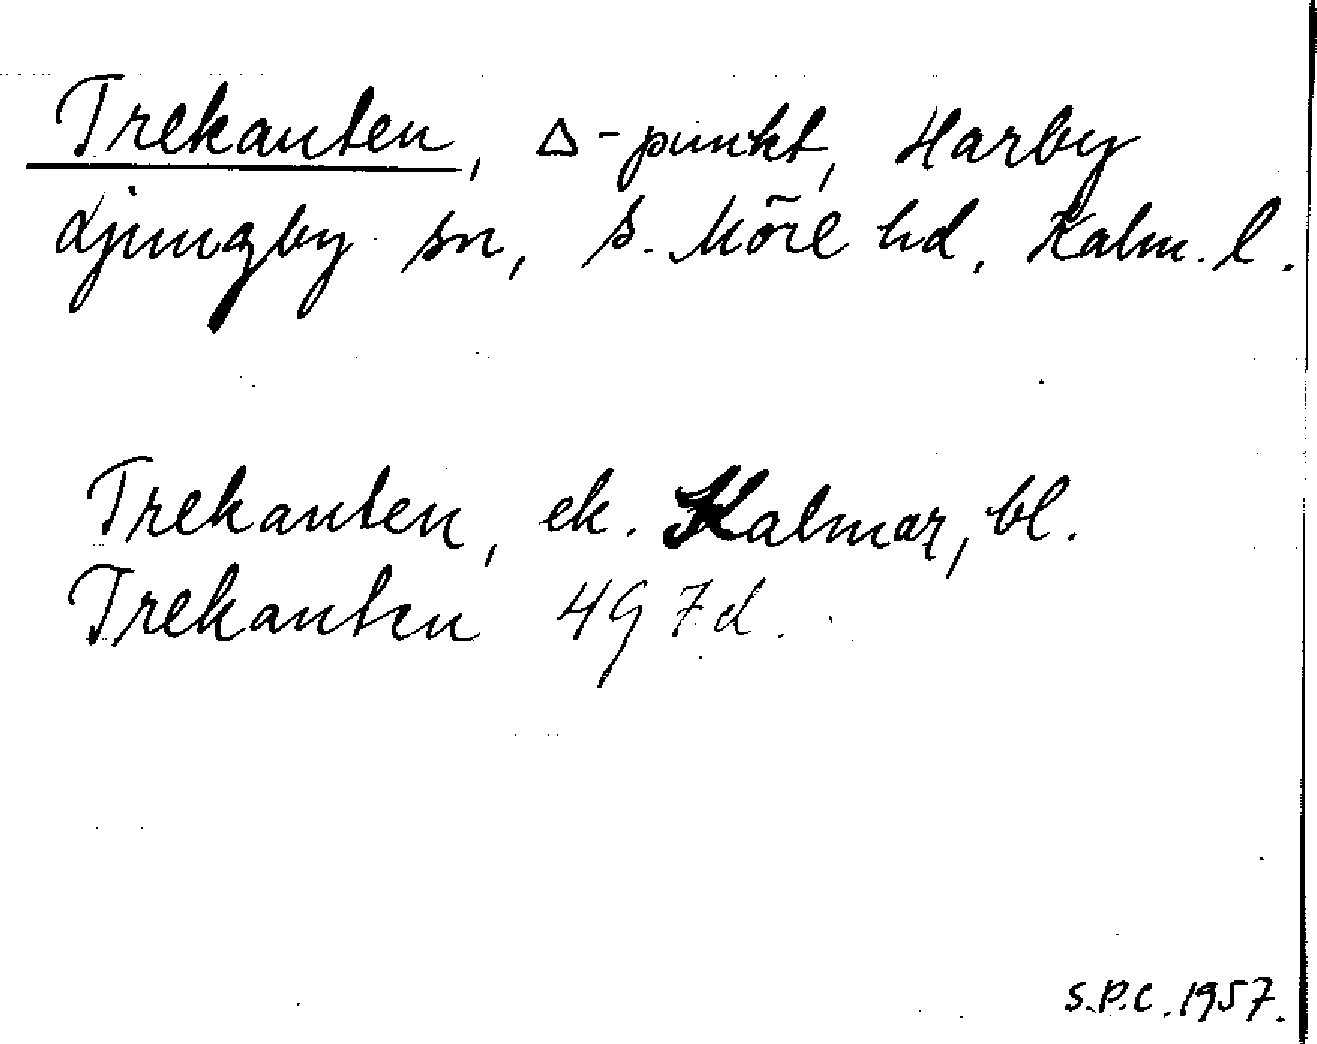 Trekanten, Δ-punkt, Harby
Ljungby sn, S. Möre hd, Kalm. l.
Trekanten, ek. Kalmar, bl.
Trekanten 4G 7d.
S.P.C. 1957.